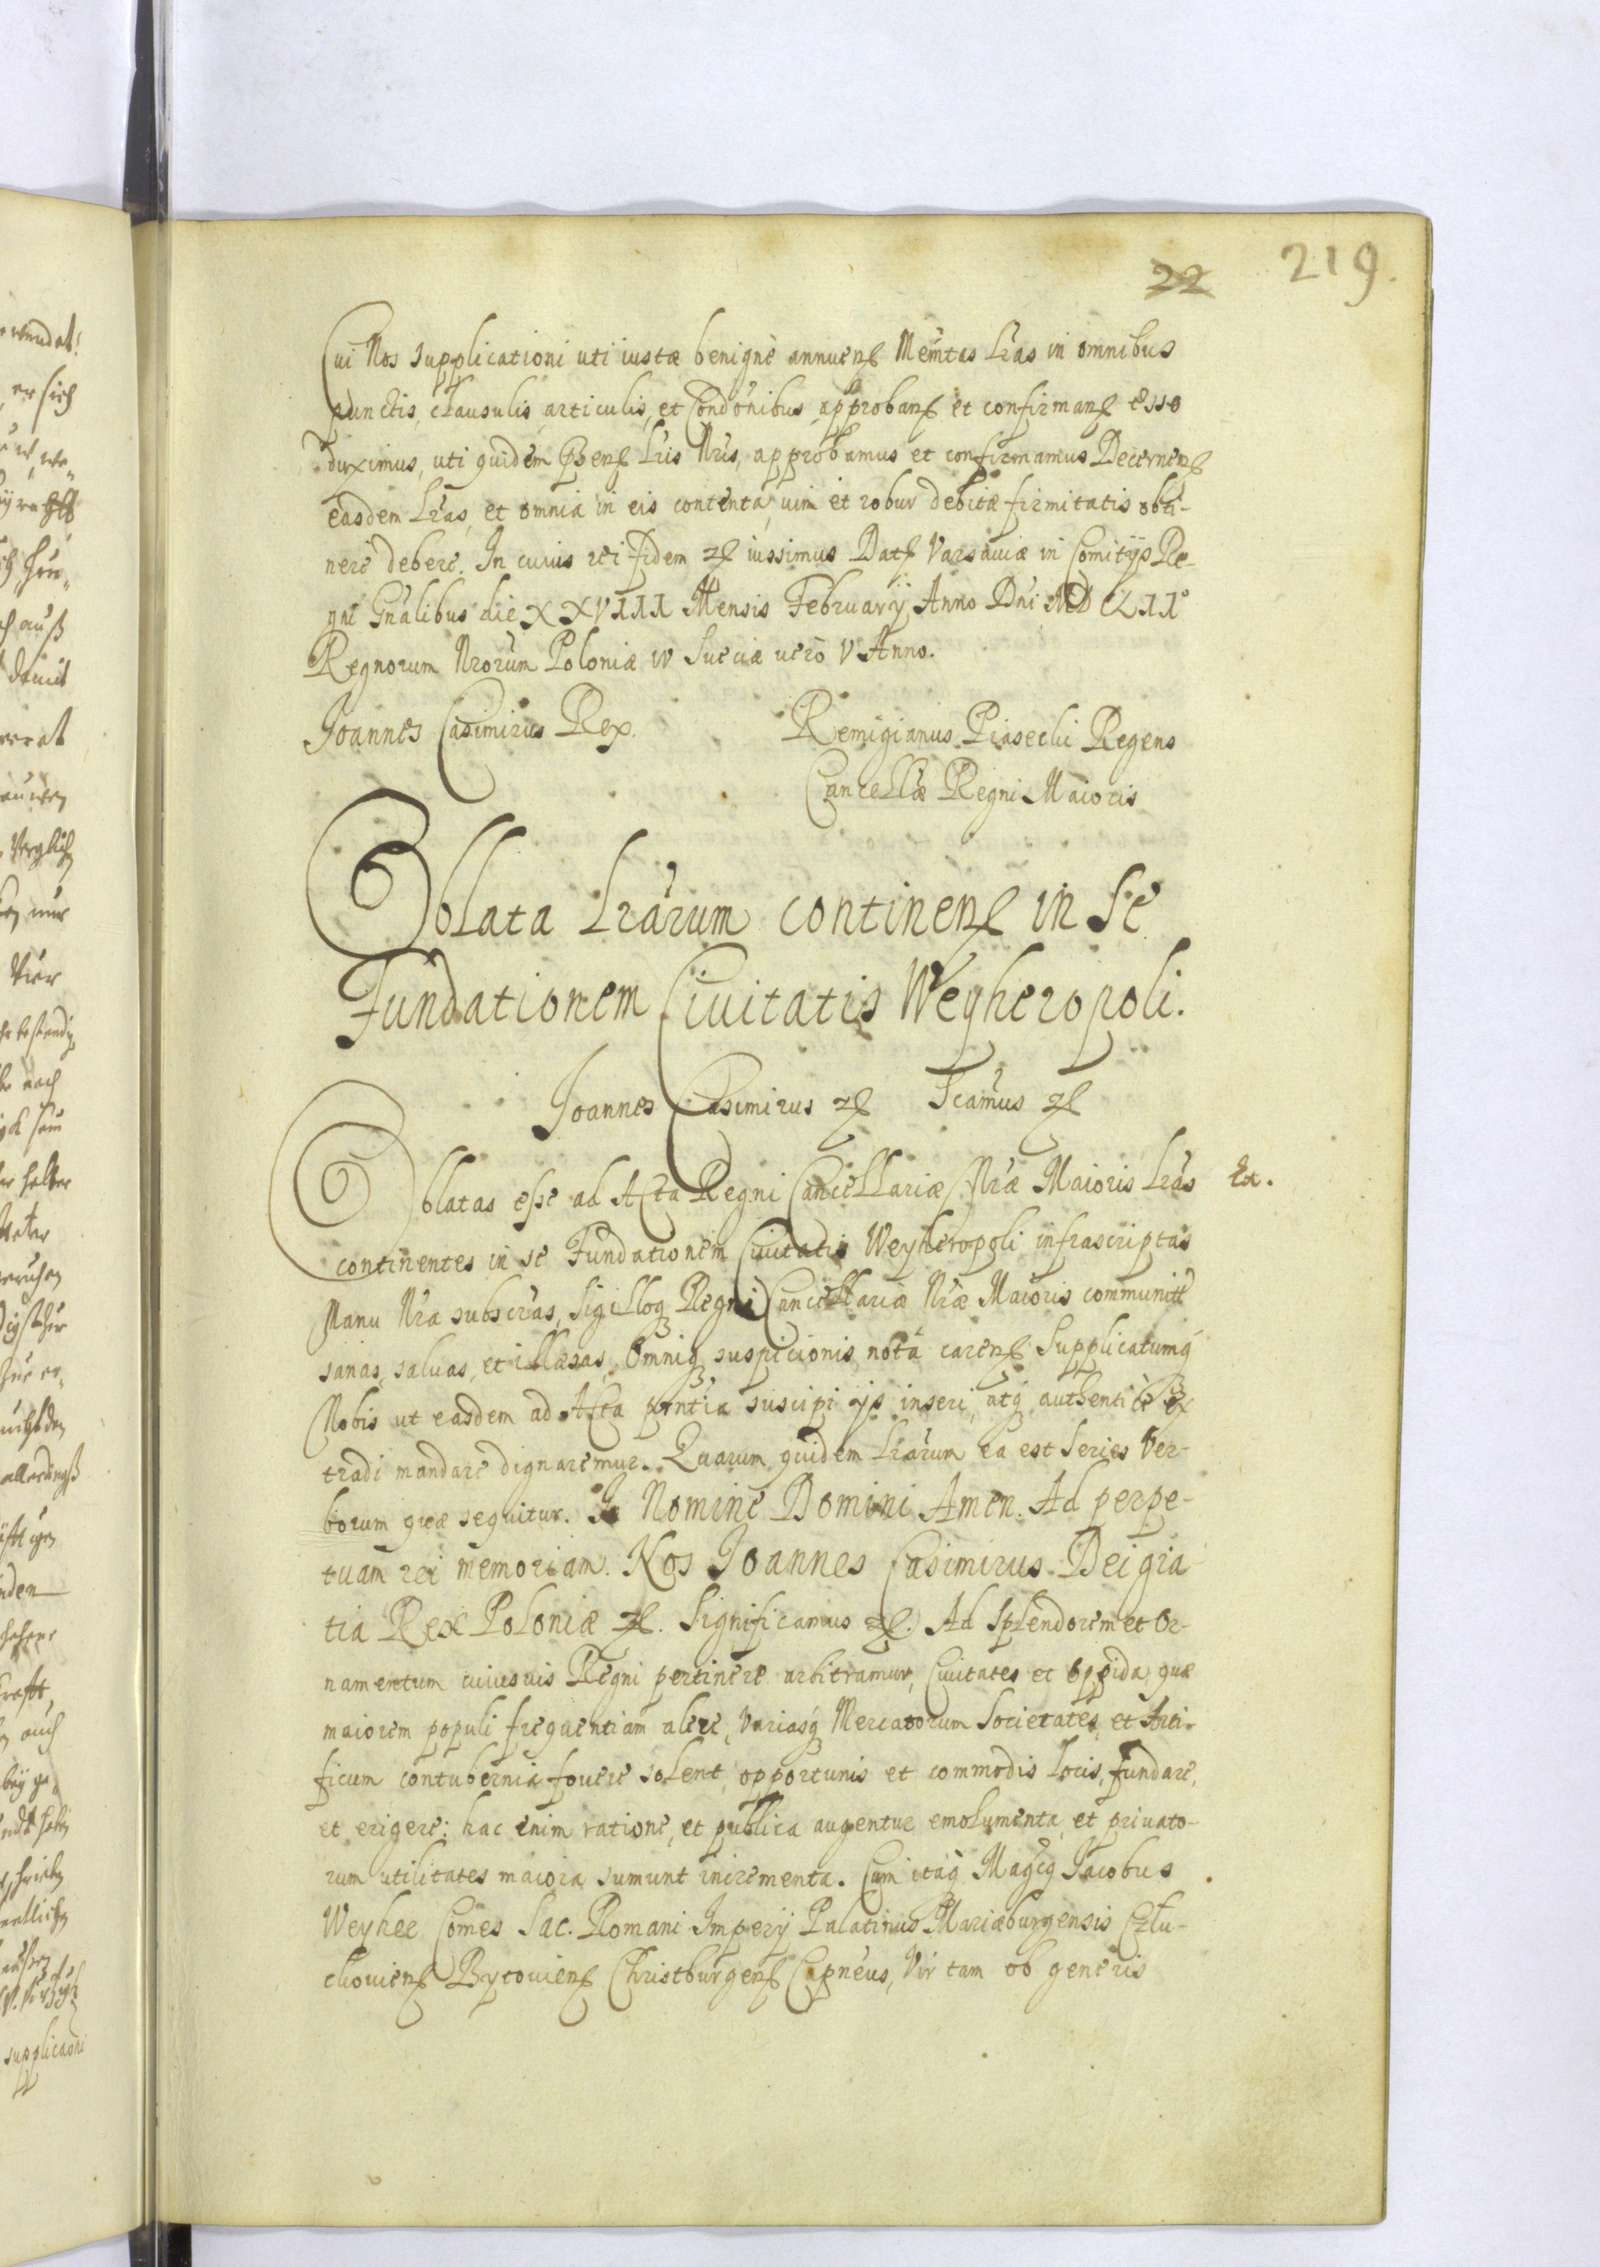 219.
22
Cui Nos supplicationi uti iustæ benigne annuen Memtas Lras in omnibus
punctis, clausulis, articulis, et Condonibus approban et confirman esse
duximus, uti quidem Pben Lris Nris, approbamus et confirmamus Decernen
easdem Lras, et omnia in eis contenta, vim et robur debitæ firmitatis obti-
nere debere. In cuius rei fidem iussimus Dat Varsaviæ in Comitijs Re-
gni Gnalibus die XXVIII Mensis February Anno Dni MDCLII°
Regnorum Nrorum Poloniæ IV Sueciæ vero V Anno.
Joannes Casimirus Rex.
Remigianus Piasecki Regens
Cancellæ Regni Maioris
Oblata Lrarum continen in se
Fundationem Civitatis Weyheropoli.
Joannes Casimirus Scamus
Oblatas esse ad Acta Regni Cancellariæ Nræ Maioris Lras
continentes in se Fundationem Civitatis Weyheropoli infrascriptas
Manu Nra subscras, Sigilloq Regni Cancellariæ Nræ Maioris communit
sanas, salvas, et illæsas, Omniq suspicionis nota caren Supplicatumq
Nobis ut easdem ad Acta pntia suscipi ijs inseri, atq authentice ex
tradi mandare dignaremur. Quarum quidem Lrarum ea est Series Ver-
borum quæ sequitur. In Nomine Domini Amen. Ad perpe-
tuam rei memoriam. Nos Joannes Casimirus Dei gra-
tia Rex Poloniæ Significamus Ad Splendorem et Or-
namentum cuiusvis Regni pertinere arbitramur, Civitates et Oppida, quæ
maiorem populi frequentiam alere, Variasq Mercatorum Societates, et Arti-
ficum contubernia fovere solent, opportunis et commodis Locis, fundare,
et erigere; hac enim ratione, et publica augentur emolumenta, et privato-
rum utilitates maiora sumunt incrementa. Cum itaq Magcq Jacobus
Weyher Comes Sac. Romani Impery Palatinus Mariæburgensis Czlu-
choviens Bytovien Christburgen Capneus, Vir tam ob generis